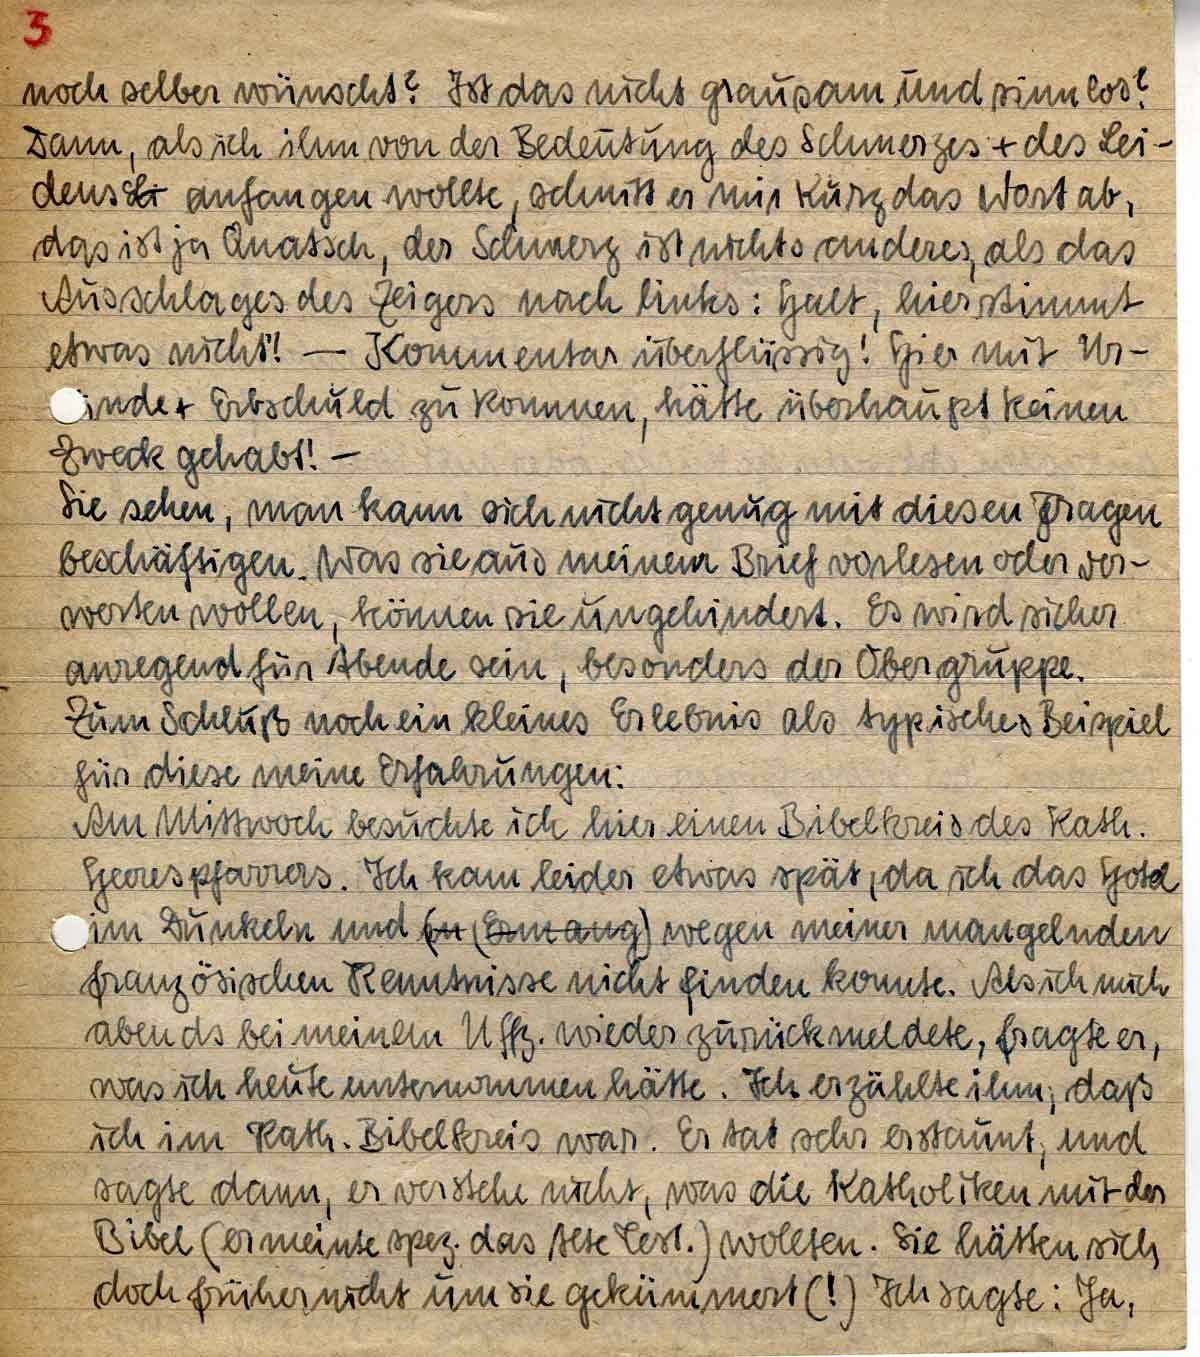 3
noch selber wünscht? Ist das nicht grausam und sinnlos?
Dann, als ich ihm von der Bedeutung des Schmerzes + des Lei-
dens anfangen wollte, schnitt er mir kurz das Wort ab,
das ist ja Quatsch, der Schmerz ist nichts anderes, als das
Ausschlages des Zeigers nach links: Halt, hier stimmt
etwas nicht! — Kommentar überflüssig! Hier mit Ur-
ünde + Erbschuld zu kommen, hätte überhaupt keinen
Zweck gehabt! —
Sie sehen, man kann sich nicht genug mit diesen Fragen
beschäftigen. Was sie aus meinem Brief vorlesen oder ver-
werten wollen, können sie ungehindert. Es wird sicher
anregend für Abende sein, besonders der Obergruppe.
Zum Schluß noch ein kleines Erlebnis als typisches Beispiel
für diese meine Erfahrungen:
Am Mittwoch besuchte ich hier einen Bibelkreis des Kath.
Heerespfarrers. Ich kam leider etwas spät, da ich das Hotel
im Dunkeln und (in (Ermang) wegen meiner mangelnden
französischen Kenntnisse nicht finden konnte. Als ich mich
abends bei meinem Uffz. wieder zurückmeldete, fragte er,
was ich heute unternommen hätte. Ich erzählte ihm, daß
ich im Kath. Bibelkreis war. Er tat sehr erstaunt, und
sagte dann, er verstehe nicht, was die Katholiken mit der
Bibel (er meinte spez. das Alte Test.) wollten. Sie hätten sich
doch früher nicht um sie gekümmert (!) Ich sagte: Ja,